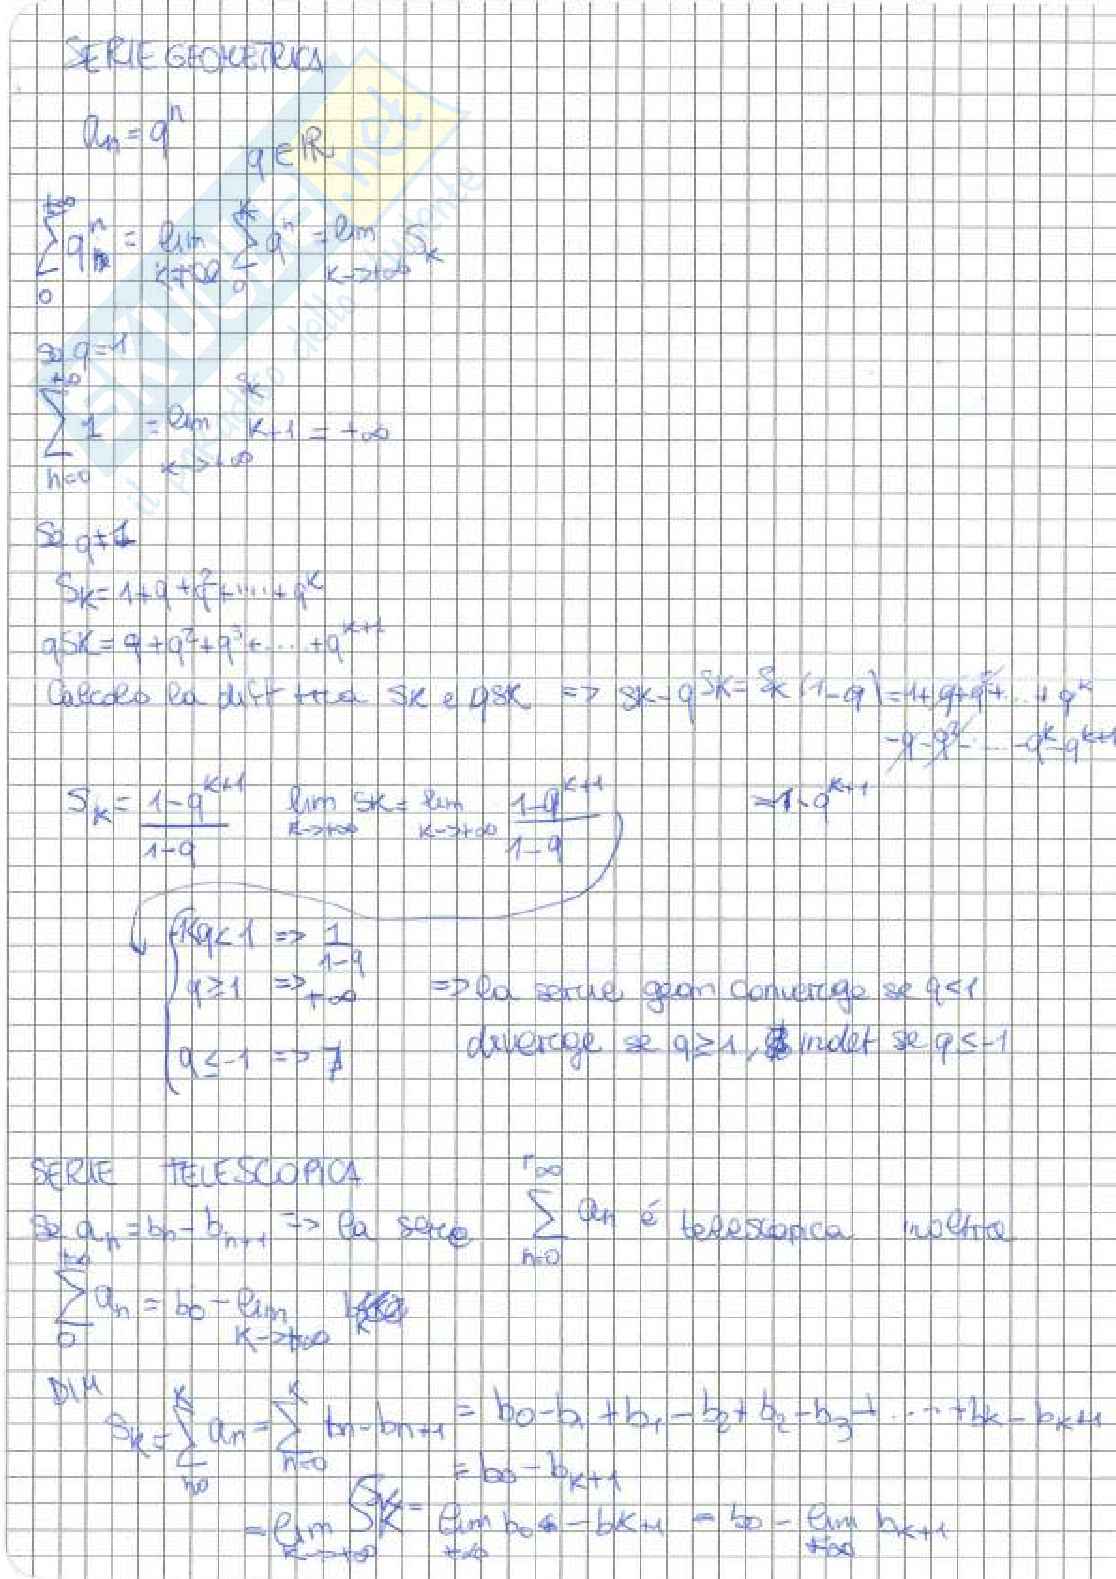 SERIE GEOMETRICA
aₙ = qⁿ q ∈ ℝ
∑₀^{+∞} qⁿ = lim_{k→+∞} ∑₀^k qⁿ = lim_{k→+∞} S_k
se q=1
∑_{n=0}^{+∞} 1 = lim_{k→+∞} S_k k+1 = +∞
Se q≠1
S_k = 1+q+q²+....+q^k
qSk = q+q²+q³+....+q^{k+1}
Calcolo la diff tra Sk e qSk => Sk-qSk = Sk(1-q) = 1+q+q²+...+q^k
-q-q²-....-q^k-q^{k+1}
S_k = \frac{1-q^{k+1}}{1-q} lim_{k→+∞} Sk = lim_{k→+∞} \frac{1-q^{k+1}}{1-q} = 1-q^{k+1}
q<1 => \frac{1}{1-q}
q≥1 => +∞ => la serie geom converge se q<1
q≤-1 => ∄ diverge se q≥1, indet se q≤-1
SERIE TELESCOPICA
Se aₙ = bₙ - b_{n+1} => la serie ∑_{n=0}^{+∞} aₙ é telescopica inoltre
∑₀^{+∞} aₙ = b₀ - lim_{k→+∞} b_k
DIM
S_k = ∑_{n=0}^k aₙ = ∑_{n=0}^k bn-bn+1 = b₀-b₁+b₁-b₂+b₂-b₃+...+bk-bk+1
= b₀-b_{k+1}
= lim_{k→+∞} Sk = lim_{+∞} b₀-bk+1 = b₀ - lim_{+∞} b_{k+1}
SKUOLA.net
il paradiso dello studente